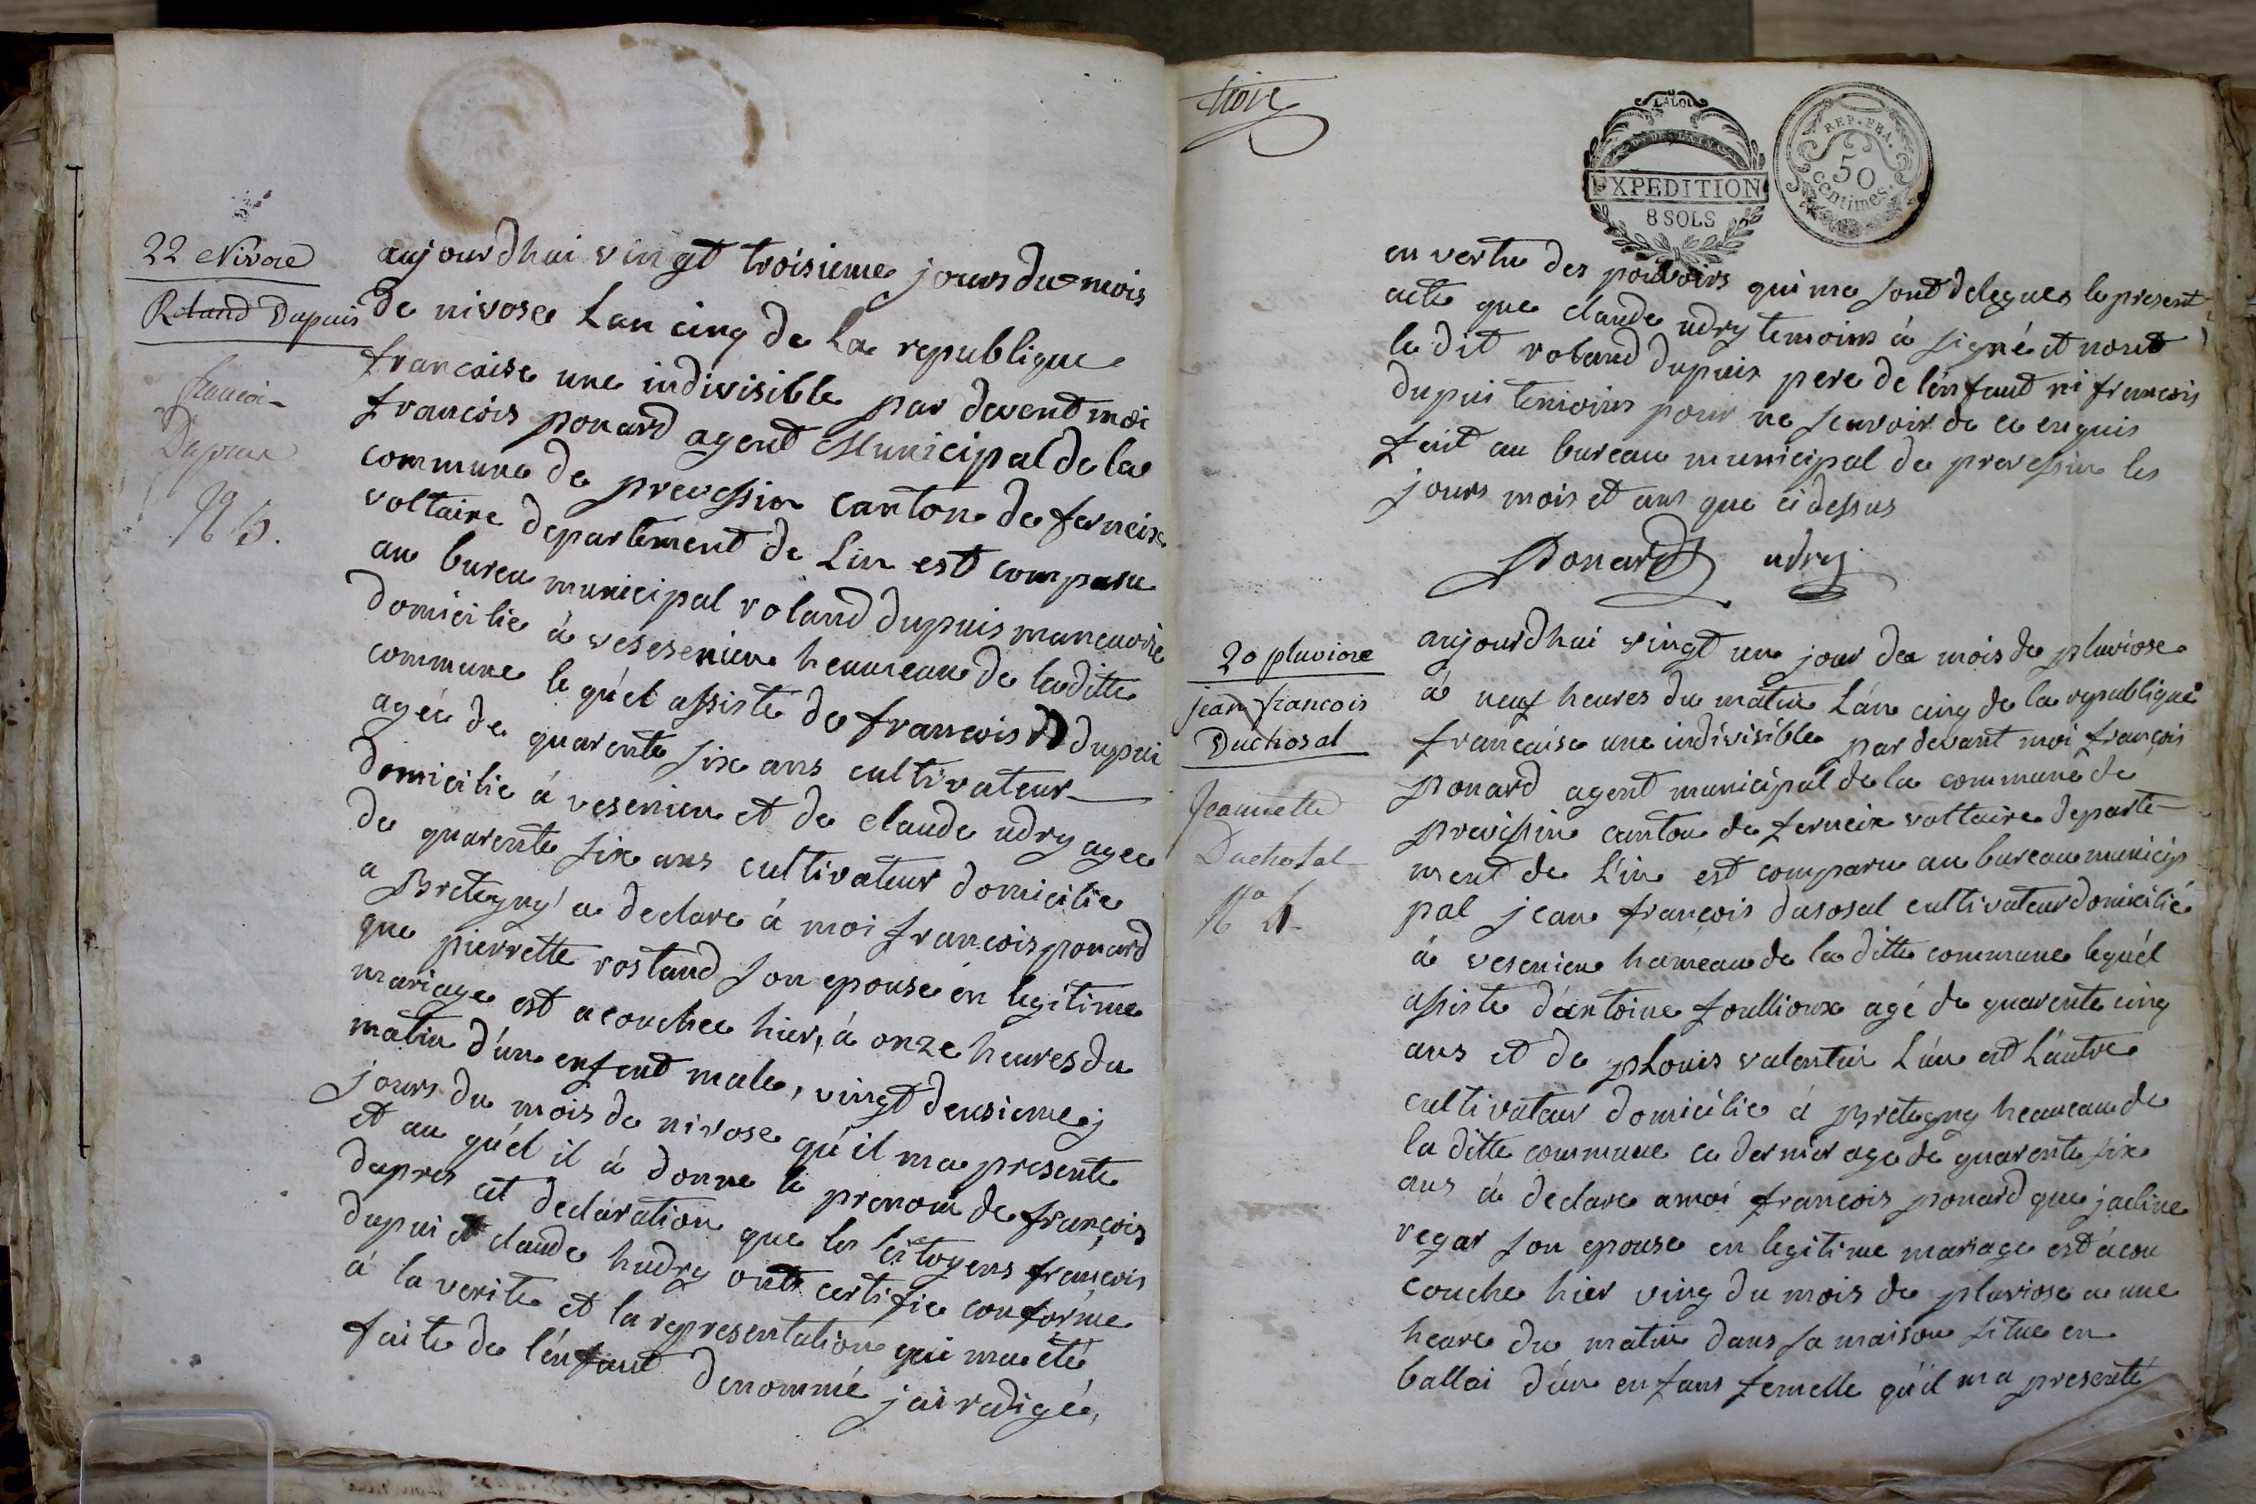 22 Nivose
Roland Dupuis
francoi
Dupuis
N 5.
aujourdhui vingt troisieme jours du mois
de nivose Lan cinq de La republique
francaise une indivisible par devent moi
francois ponard agent Municipal de la
commune de prevessin canton de ferneix
voltaire departement de Lin est comparu
au bureu municipal roland dupuis maneuvre
domicilie à vesenieu heameau de la ditte
commune le qu'el assiste de francois D dupui
agée de quarente six ans cultivateur
domicilie à vesenieu et de claude udry agee
de quarente six ans cultivateur domicilie
a Bretegny a declare à moi francois ponard
que pierrette rostand son epouse én legitime
mariage est acouchee hier, à onze heures du
matin d'un enfent male, vingt deusieme j
jours du mois de nivose qu'il ma presente
et au qu'el il à donne le prenom de françois
dapres cet declaration que les citoyens françois
dupui et claude hudry onts certifie conforme
à la verite et la representation qui ma etè
faite de l'énfant denommé jai redigé,
trois
LA LOI
EXPEDITION
8 SOLS
REP. FRA.
50
centimes.
en vertue des pouvoirs qui me sont delegues le present
acte que claude udry temoins à signé et nont
le dit roland dupuis pere de l'énfant ni francois
dupui temoins pour ne scavoir de ce enquis
fait au bureau municipal de prevessin les
jours mois et ans que ci dessus
Ponard udry
20 pluviose
jean francois
Duchosal
Jeannette
Duchosal
No 6
aujourdhui vingt un jour de mois de pluviose
à neuf heures du matin L'án cinq de la republique
française une indivisible par devant moi françois
ponard agent municipal de la commune de
prevessin canton de ferneix voltaire departe
ment de L'in est comparu au bureau municip
pal jean francois dusosal cultivateur domicilié
à vesenieu hameau de la ditte commune lequ'el
assiste d'antoine foullioux agé de quarente cinq
ans et de pLouis valentin L'un est L'autre
cultivateur domicilie à Bretegny heameau de
la ditte commune ce dernier age de quarente six
ans à declare a moi francois ponard que jacline
regar son epouse en legitime mariage est àcou
couche hier ving du mois de pluviose a une
heure du matin dans sa maison situe en
ballai d'un enfans femelle qu'il ma presenté